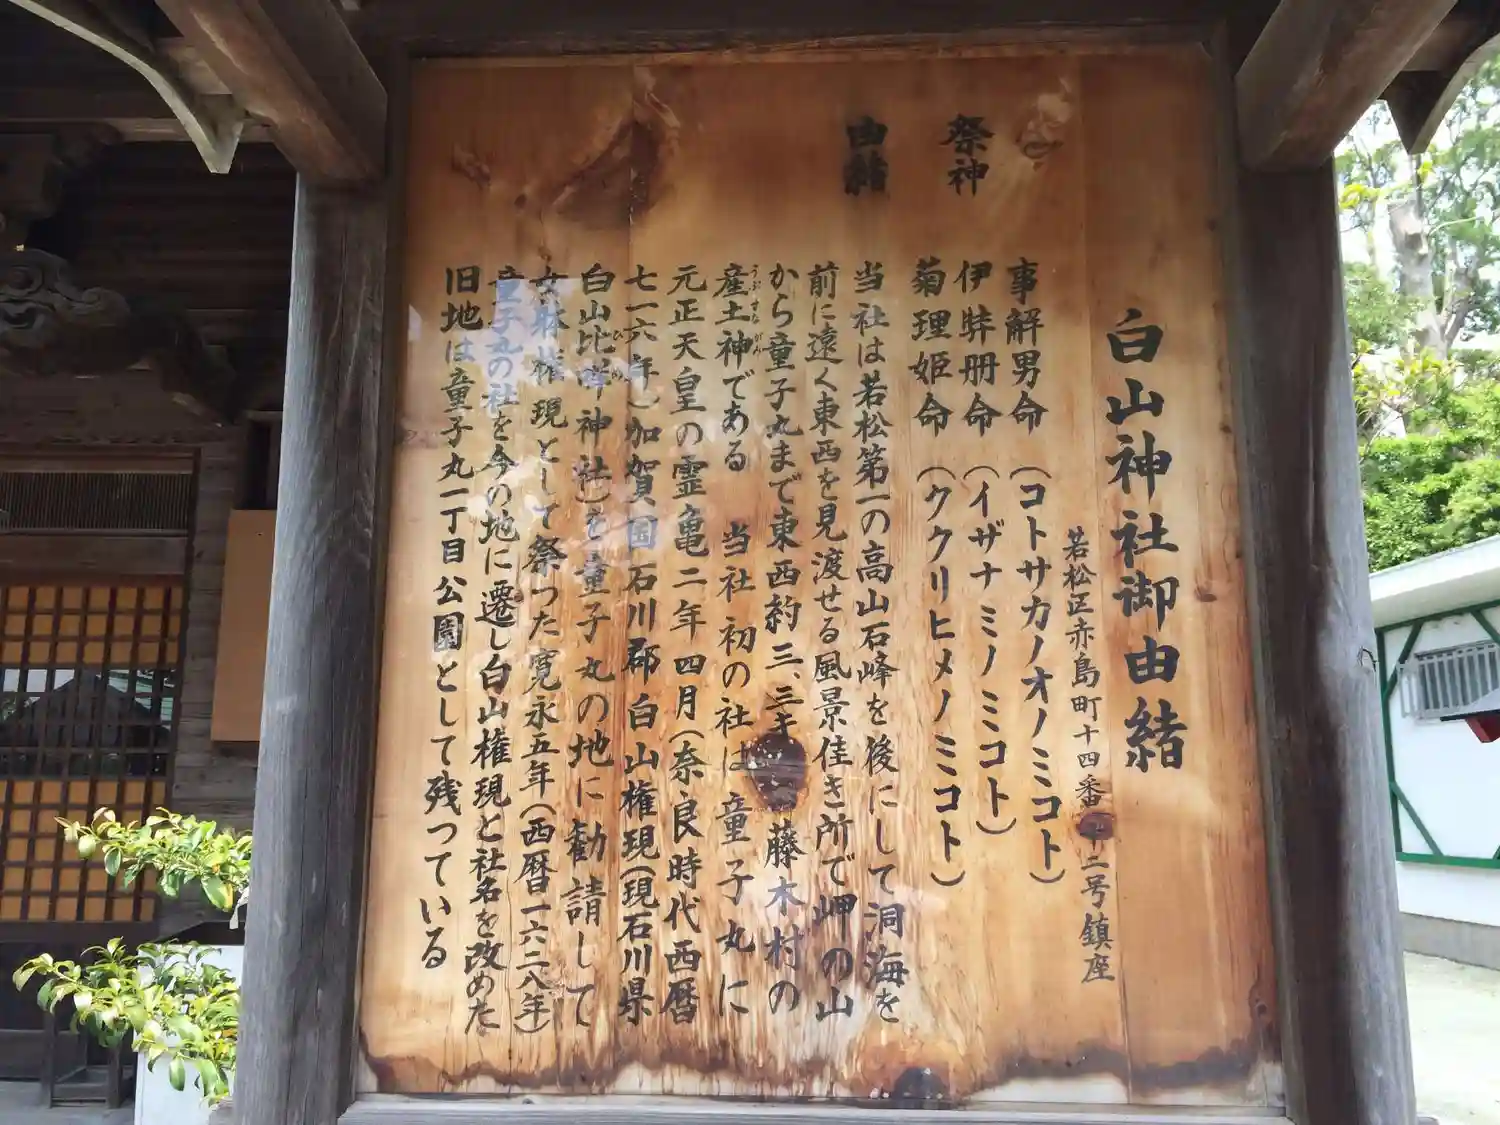 白山神社御由緒
若松区赤島町十四番十二号鎮座
祭神
事解男命(コトサカノオノミコト)
伊弉冊命(イザナミノミコト)
菊理姫命(ククリヒメノミコト)
由緒
当社は若松第一の高山石峰を後にして洞海を
前に遠く東西を見渡せる風景佳き所で岬の山
から童子丸まで東西約三、三キ 藤木村の
産土神である 当社初の社は童子丸に
うぶすながみ
元正天皇の霊亀二年四月(奈良時代西暦
七一六年)加賀国石川郡白山権現(現石川県
白山比咩神社)を童子丸の地に勧請して
女躰権現として祭つた寛永五年(西暦一六二八年)
童子丸の社を今の地に遷し白山権現と社名を改めた
旧地は童子丸一丁目公園として残つている